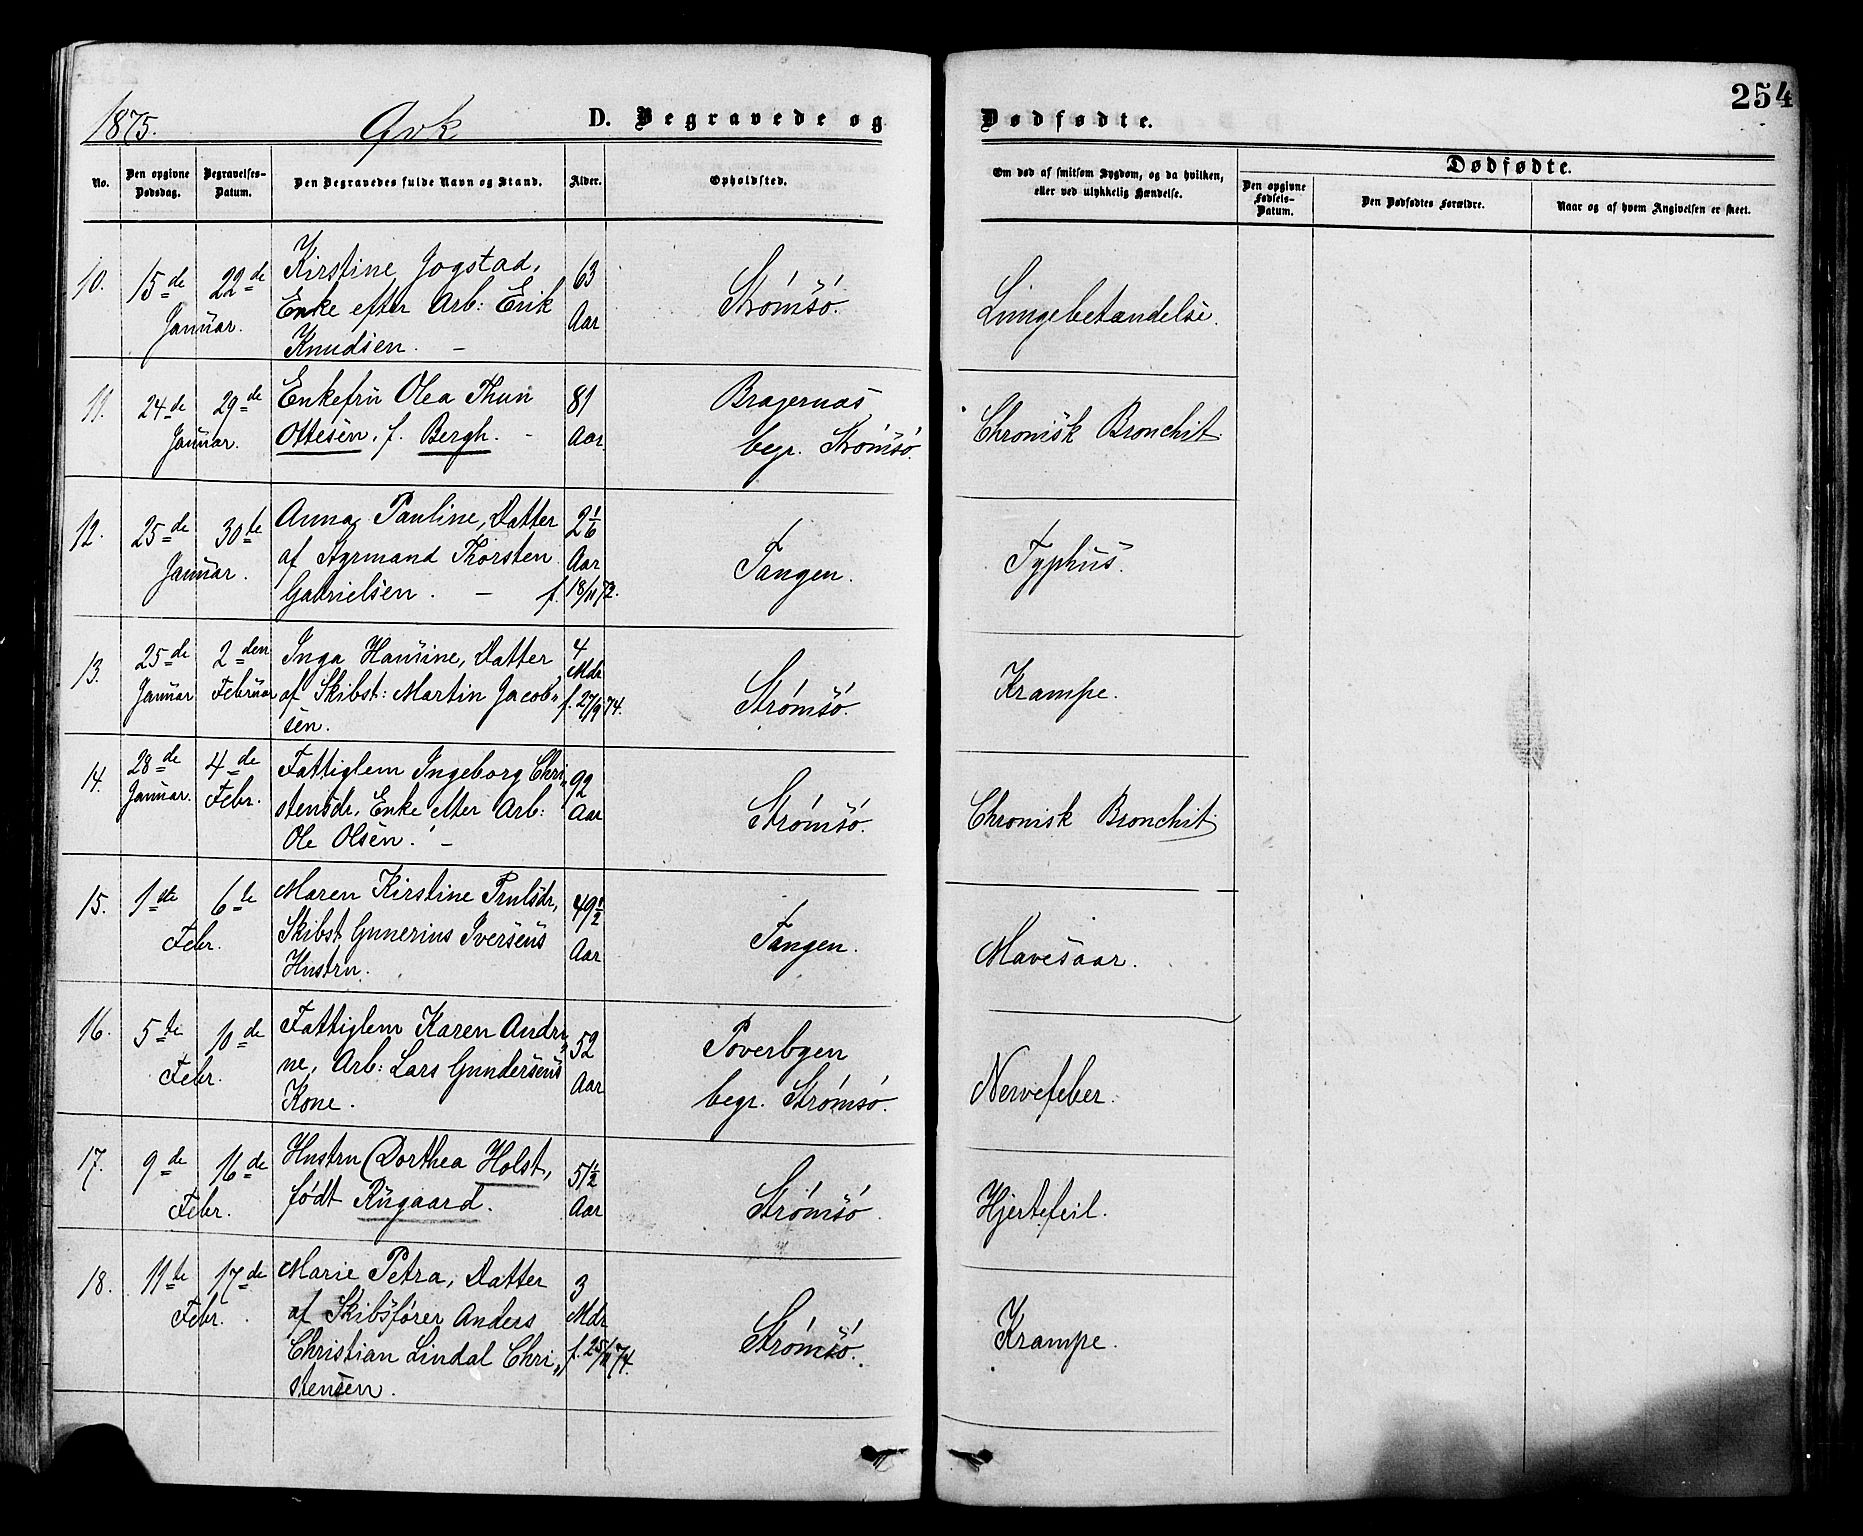 1875.
Qvk
D. Begravede og
Dødfødte.
254
No.
Den opgivne Dødsdag.
Begravelses-Datum.
Den Begravedes fulde Navn og Stand.
Alder.
Opholdsted.
Om død af smitsom Sygdom, og da hvilken,
eller ved ulykkelig Hændelse.
Dødfødte.
Den opgivne Fødsels-Datum.
Den Dødfødtes Forældre.
Naar og af hvem Angivelsen er skeet.
10. 15de 22de Kirstine Jogstad, 63 Strømsö. Lungebetændelse.
Januar. Enke efter Arb: Erik Aar
Knudsen. –
11. 24de 29de Enkefru Olea Thun 81 Bragernæs Chronisk Bronchit.
Januar. Ottesen, f. Bergh. – Aar begr. Strømsö.
12. 25de 30te Anna Pauline, Datter 2 1/6 Tangen. Typhus.
Januar. af Styrmand Thorsten Aar
Gabrielsen. – f. 18/11 72.
13. 25de 2den Inga Hansine, Datter 4 Mdr Strømsö. Krampe.
Januar Februar af Skibst: Martin Jacob„ f. 27/9 74.
sen.
14. 28de 4de Fattiglem Ingeborg Chri„ 92 Strømsö. Chronisk Bronchit.
Januar. Febr. stensdr, Enke efter Arb: Aar
Ole Olsen. –
15. 1ste 6te Maren Kirstine Paulsdr, 49 1/2 Tangen. Mavesaar.
Febr. Skibst Gunerius Iversens Aar
Hustru.
16. 5te 10de Fattiglem Karen Andri„ 52 Poverbyen Nervefeber.
Febr. ne, Arb: Lars Gundersens Aar begr. Strømsö.
Kone.
17. 9de 16de Hustru Dorthea Holst, 51 1/2 Strømsö. Hjertefeil.
Febr. født Rügaard. Aar
18. 11te 17de Marie Petra, Datter 3 Strømsö. Krampe.
Febr. af Skibsfører Anders Mdr
Christian Lindal Chri„ f. 25/11 74.
stensen.